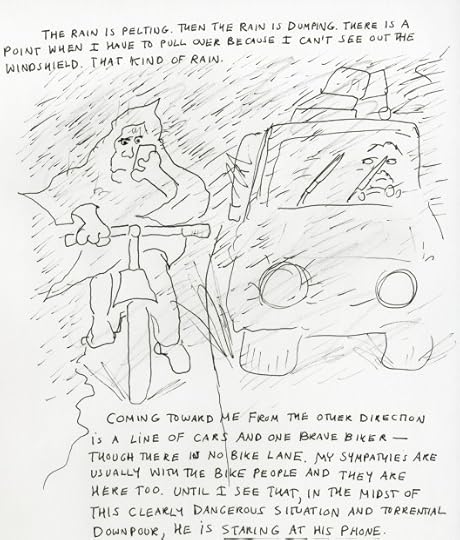 THE RAIN IS PELTING. THEN THE RAIN IS DUMPING. THERE IS A
POINT WHEN I HAVE TO PULL OVER BECAUSE I CAN'T SEE OUT THE
WINDSHIELD. THAT KIND OF RAIN.
COMING TOWARD ME FROM THE OTHER DIRECTION
IS A LINE OF CARS AND ONE BRAVE BIKER —
THOUGH THERE IS NO BIKE LANE. MY SYMPATHIES ARE
USUALLY WITH THE BIKE PEOPLE AND THEY ARE
HERE TOO. UNTIL I SEE THAT, IN THE MIDST OF
THIS CLEARLY DANGEROUS SITUATION AND TORRENTIAL
DOWNPOUR, HE IS STARING AT HIS PHONE.